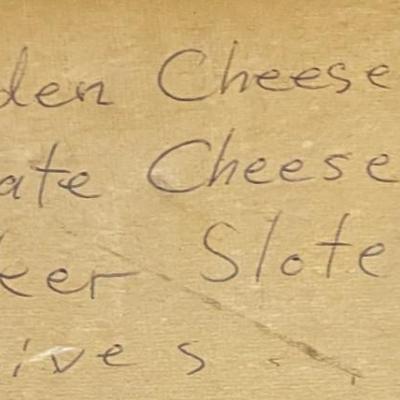 den Cheese
ate Cheese
eer Slote
ives